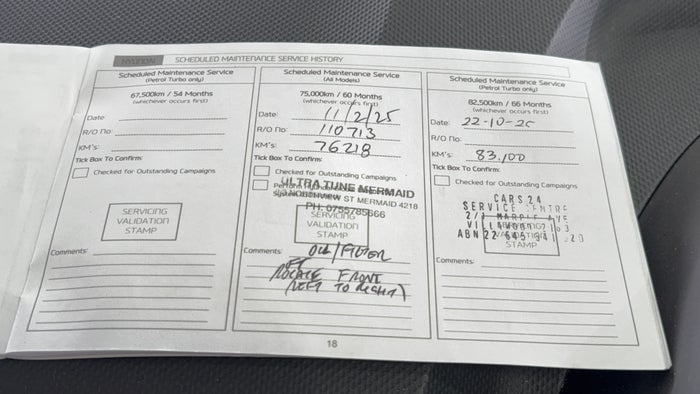 HYUNDAI SCHEDULED MAINTENANCE SERVICE HISTORY
Scheduled Maintenance Service
(Petrol Turbo only)
67,500km / 54 Months
(whichever occurs first)
Date:
R/O No:
KM's:
Tick Box To Confirm:
Checked for Outstanding Campaigns
SERVICING
VALIDATION
STAMP
Comments:
Scheduled Maintenance Service
(All Models)
75,000km / 60 Months
(whichever occurs first)
Date: 11/2/25
R/O No: 110713
KM's: 76218
Tick Box To Confirm:
Checked for Outstanding Campaigns
ULTRA TUNE MERMAID
ST MERMAID 4218
PH: 0755785666
SERVICING
VALIDATION
STAMP
Comments: OIL/FILTER
ROTATE FRONT
(LEFT TO RIGHT)
Scheduled Maintenance Service
(Petrol Turbo only)
82,500km / 66 Months
(whichever occurs first)
Date: 22-10-25
R/O No:
KM's: 83,100
Tick Box To Confirm:
Checked for Outstanding Campaigns
CARS 24
SERVICE CENTRE
ABN 22 645
STAMP
Comments:
18